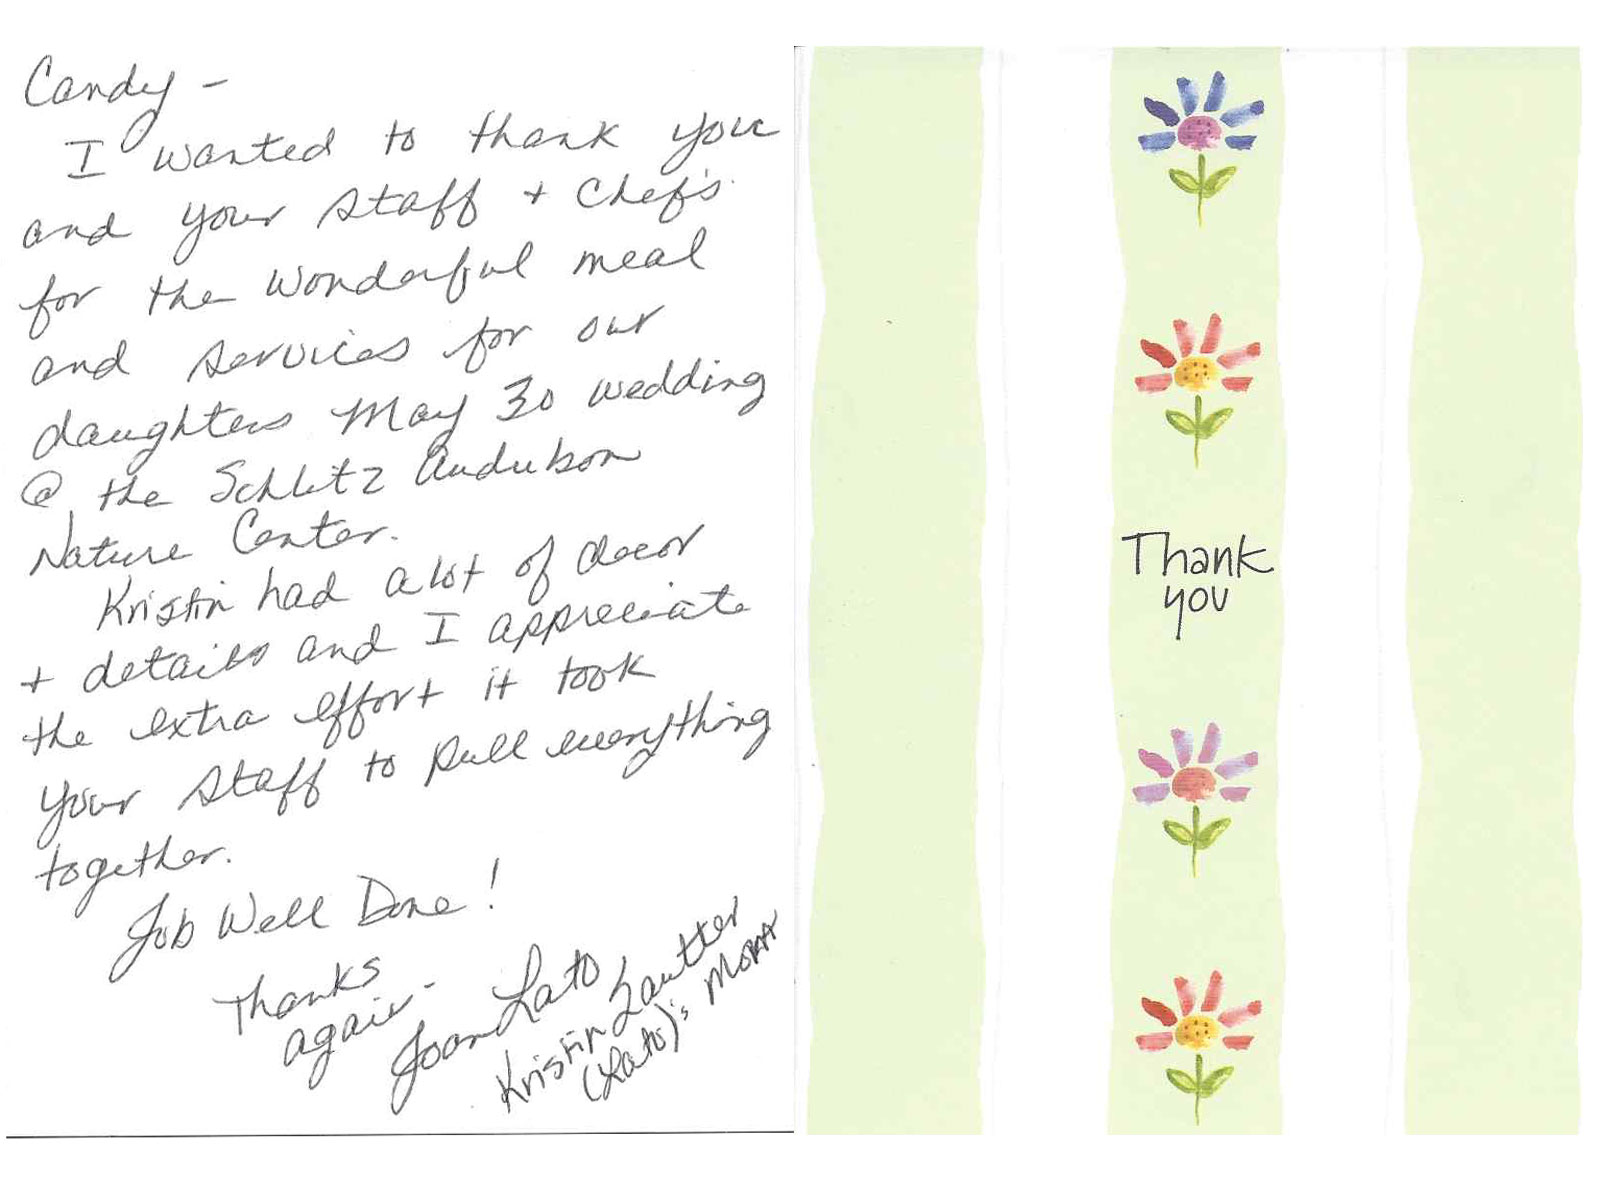 Candy -
I wanted to thank you
and your staff + Chef's
for the wonderful meal
and services for our
daughters May 30 wedding
@ the Schlitz Audubon
Nature Center.
Kristin had a lot of decor
+ details and I appreciate
the extra effort it took
your staff to pull everything
together.
Job Well Done!
Thanks
again -
Joan Lato
Kristin Lautter
(Lato)'s Mom
Thank
you